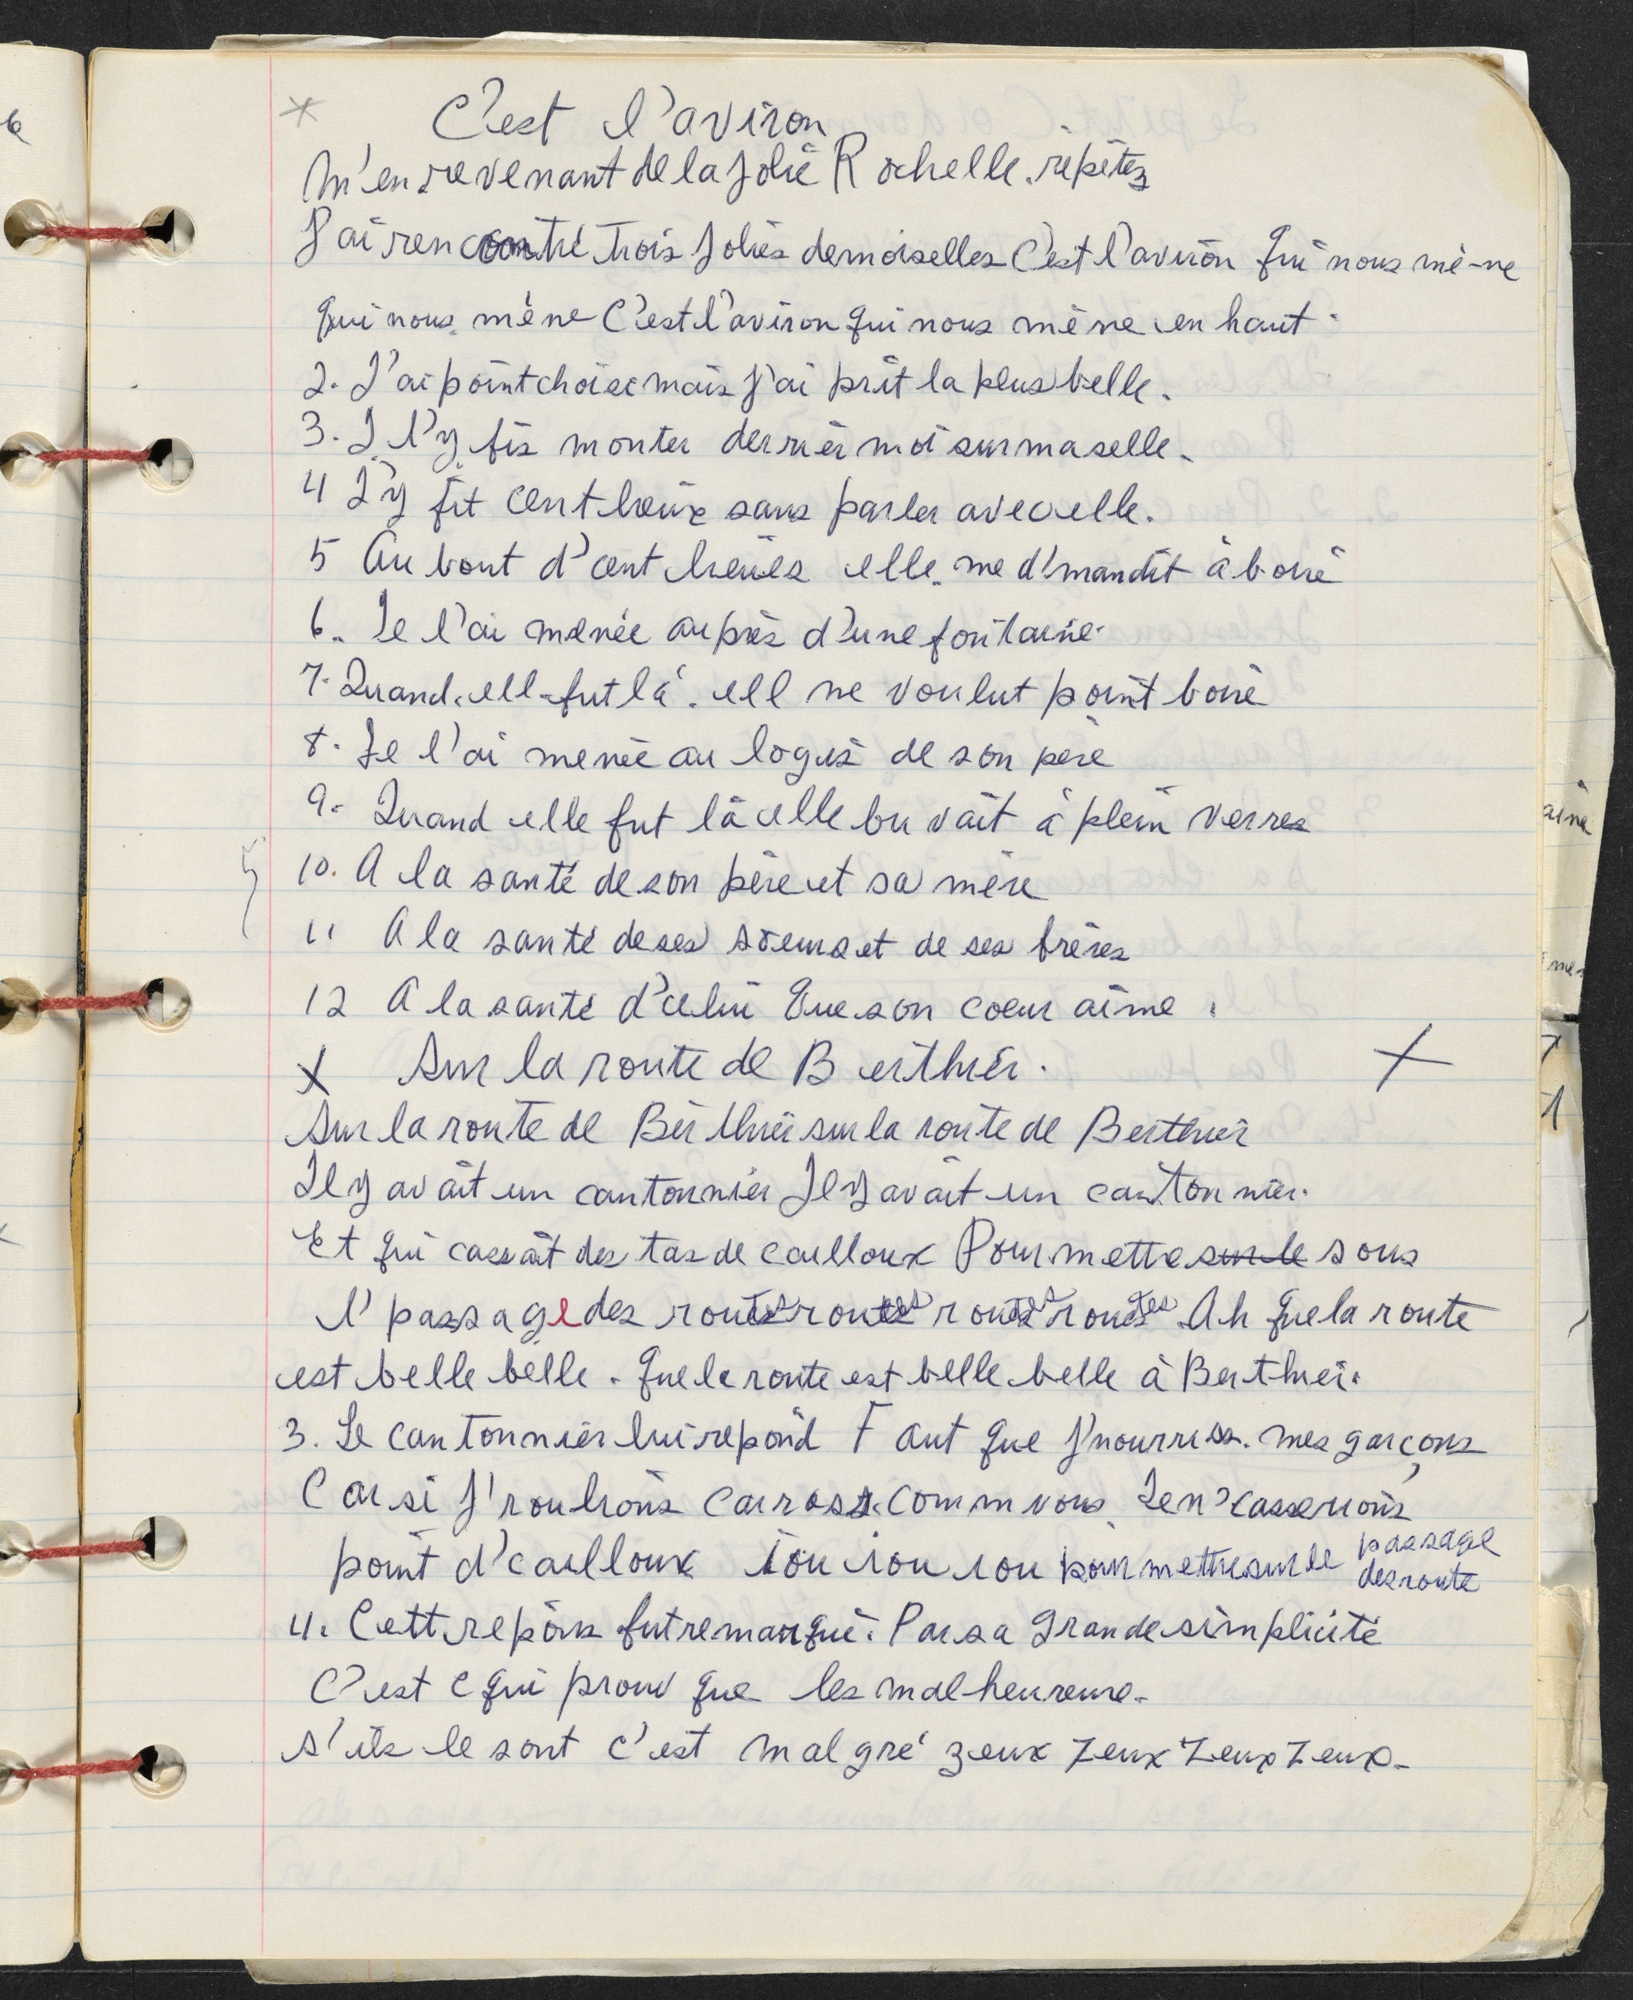 C'est l'aviron
M'en revenant de la jolie Rochelle. répétez
J'ai rencontré trois jolies demoiselles C'est l'aviron qui nous mè-ne
qui nous mène C'est l'aviron qui nous mène en haut.
2. J'ai point choisi mais j'ai prit la plus belle.
3. J l'y fis monter derrièr moi sur ma selle.
4 J'y fit cent lieux sans parler avec elle.
5 Au bout d'cent lieues elle me d'mandit à boire
6. Je l'ai menée auprès d'une fontaine.
7. Quand ell fut là. ell ne voulut point boire
8. Je l'ai menée au logis de son père
9. Quand elle fut là elle buvait à plein verres
10. A la santé de son père et sa mère
11 A la santé de ses soeurs et de ses frères
12 A la santé d'celui que son coeur aime.
X Sur la route de Berthier. X
Sur la route de Berthier sur la route de Berthier
Il y avait un cantonnier Il y avait un cantonnier.
Et qui cassait des tas de cailloux Pour mettre sur le sous
l'passage des routes routes routes routes Ah que la route
est belle belle. que la route est belle belle à Berthier.
3. Le cantonnier lui repond Faut que j'nourriss. mes garçons
Car si j'roulions carross. comm vous Je n'casserions
point d'cailloux iou iou iou pour mettre sur le passage
des route
4. Cett repons fut remarqué. Par sa grande simplicité
C'est c qui prouv que les malheureux.
s'ils le sont c'est malgré zeux zeux zeux zeux.